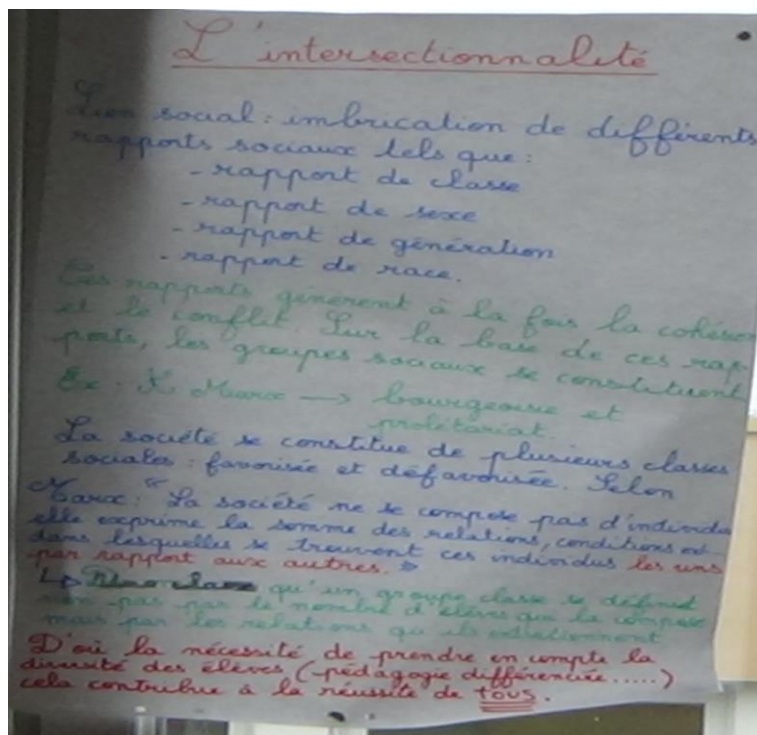 L'intersectionnalité
Lien social : imbrication de différents
rapports sociaux tels que :
- rapport de classe
- rapport de sexe
- rapport de génération
- rapport de race.
Ces rapports génèrent à la fois la cohésion
et le conflit. Sur la base de ces rap-
ports, les groupes sociaux se constituent
Ex : K. Marx → bourgeoisie et
prolétariat.
La société se constitue de plusieurs classes
sociales : favorisée et défavorisée. Selon
Marx : " La société ne se compose pas d'individus
elle exprime la somme des relations, conditions
dans lesquelles se trouvent ces individus les uns
par rapport aux autres. "
qu'un groupe classe se définit
non pas par le nombre d'élèves qui le compose
mais par les relations qu'ils entretiennent
D'où la nécessité de prendre en compte la
diversité des élèves (pédagogie différenciée.....)
cela contribue à la réussite de tous.